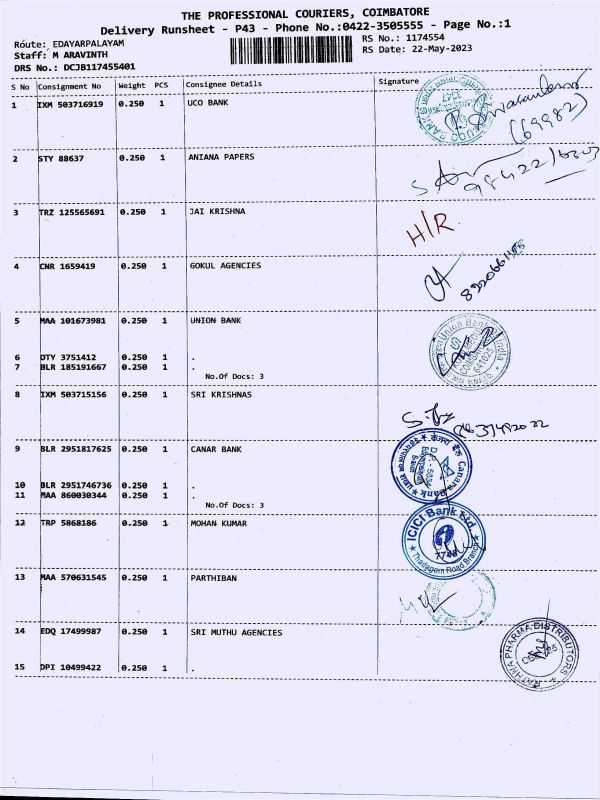 THE PROFESSIONAL COURIERS, COIMBATORE
Delivery Runsheet - P43 - Phone No.:0422-3505555 - Page No.:1
Route: EDAYARPALAYAM
RS No.: 1174554
Staff: M ARAVINTH
RS Date: 22-May-2023
DRS No.: DCJB117455401
S No Consignment No Weight PCS Consignee Details Signature
1 IXM 503716919 0.250 1 UCO BANK
(69982)
2 STY 88637 0.250 1 ANIANA PAPERS
3 TRZ 125565691 0.250 1 JAI KRISHNA
H/R
4 CNR 1659419 0.250 1 GOKUL AGENCIES
5 MAA 101673981 0.250 1 UNION BANK
Union Bank of India
641025
6 DTY 3751412 0.250 1 .
7 BLR 185191667 0.250 1 .
No.Of Docs: 3
8 IXM 503715156 0.250 1 SRI KRISHNAS
9 BLR 2951817625 0.250 1 CANAR BANK
केनरा बैंक Canara Bank
10 BLR 2951746736 0.250 1 .
11 MAA 860030344 0.250 1 .
No.Of Docs: 3
12 TRP 5868186 0.250 1 MOHAN KUMAR
ICICI Bank Ltd.
Thadagam Road Branch
13 MAA 570631545 0.250 1 PARTHIBAN
14 EDQ 17499987 0.250 1 SRI MUTHU AGENCIES
PHARMA DISTRIBUTORS
15 DPI 10499422 0.250 1 .